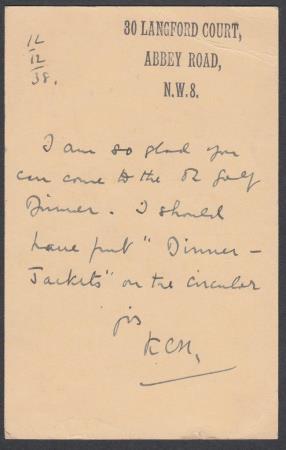 30 LANGFORD COURT,
ABBEY ROAD,
N.W.8.
12
12
38.
I am so glad you
can come to the golf
Dinner. I should
have put "Dinner -
Jackets" on the circular
KCH,